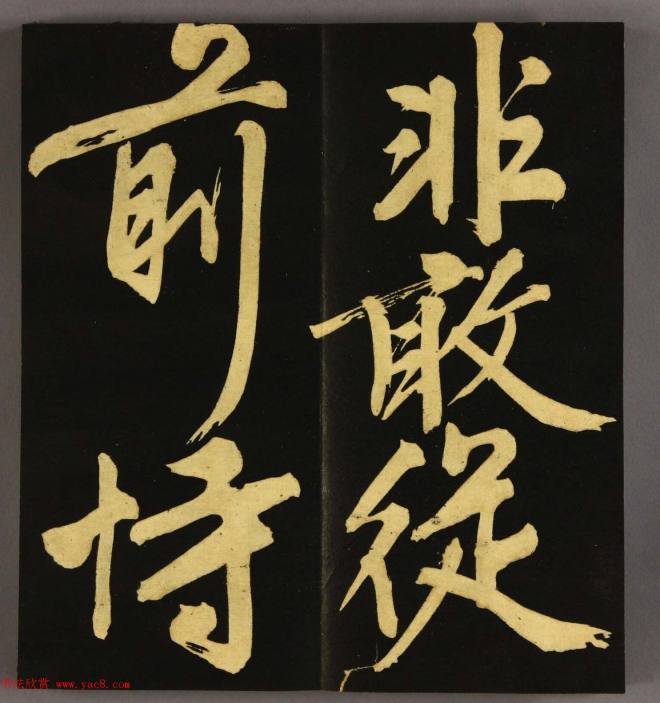 非敢從
前恃
书法欣赏 www.yac8.com